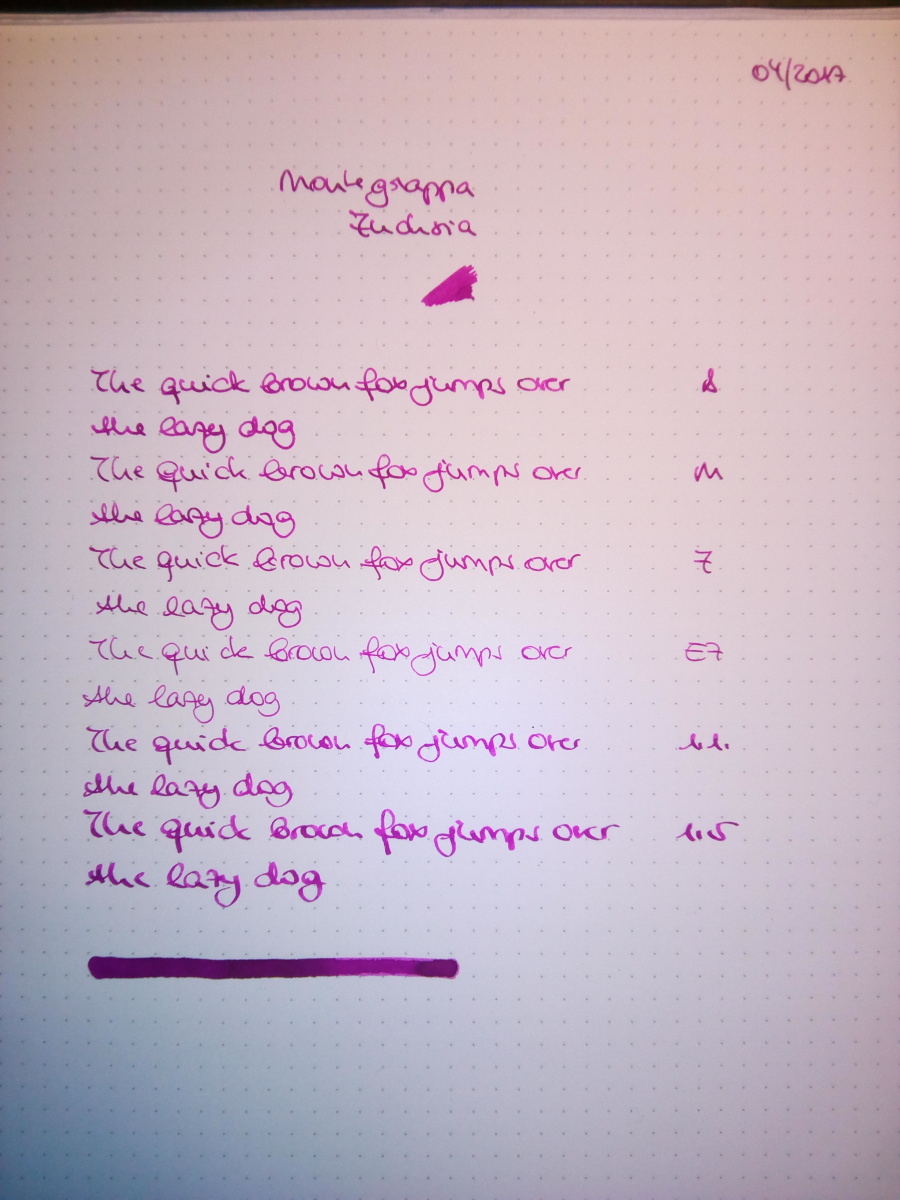 04/2017
Montegrappa
Fuchsia
The quick brown fox jumps over B
the lazy dog
The quick brown fox jumps over M
the lazy dog
The quick brown fox jumps over F
the lazy dog
The quick brown fox jumps over EF
the lazy dog
The quick brown fox jumps over 1.1.
the lazy dog
The quick brown fox jumps over 1.5
the lazy dog